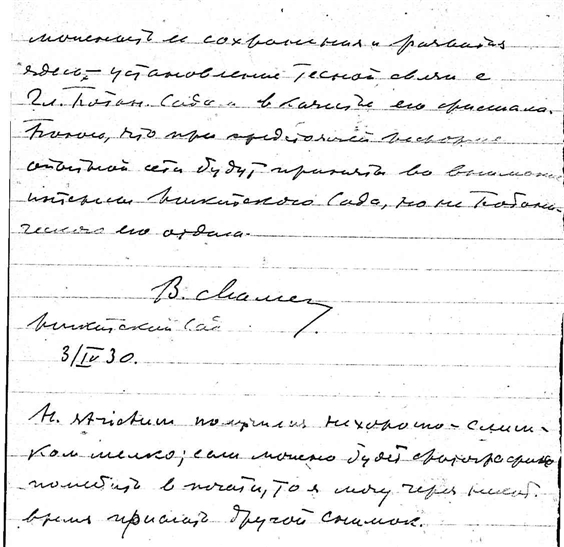 сохранения и развития
здесь – установление тесной связи с
Гл. Ботан. Сада в качестве его филиала.
Боюсь, что при предстоящей
опытной сети будут приняты во внимание
интересы Никитского Сада, но не Ботани-
ческого его отдела.
В. Малеев
Никитский Сад
3/IV 30.
H. strictum получился нехорошо – слиш-
ком мелко; если можно будет фотографию
поместить в печати, то я могу через некот.
время прислать другой снимок.